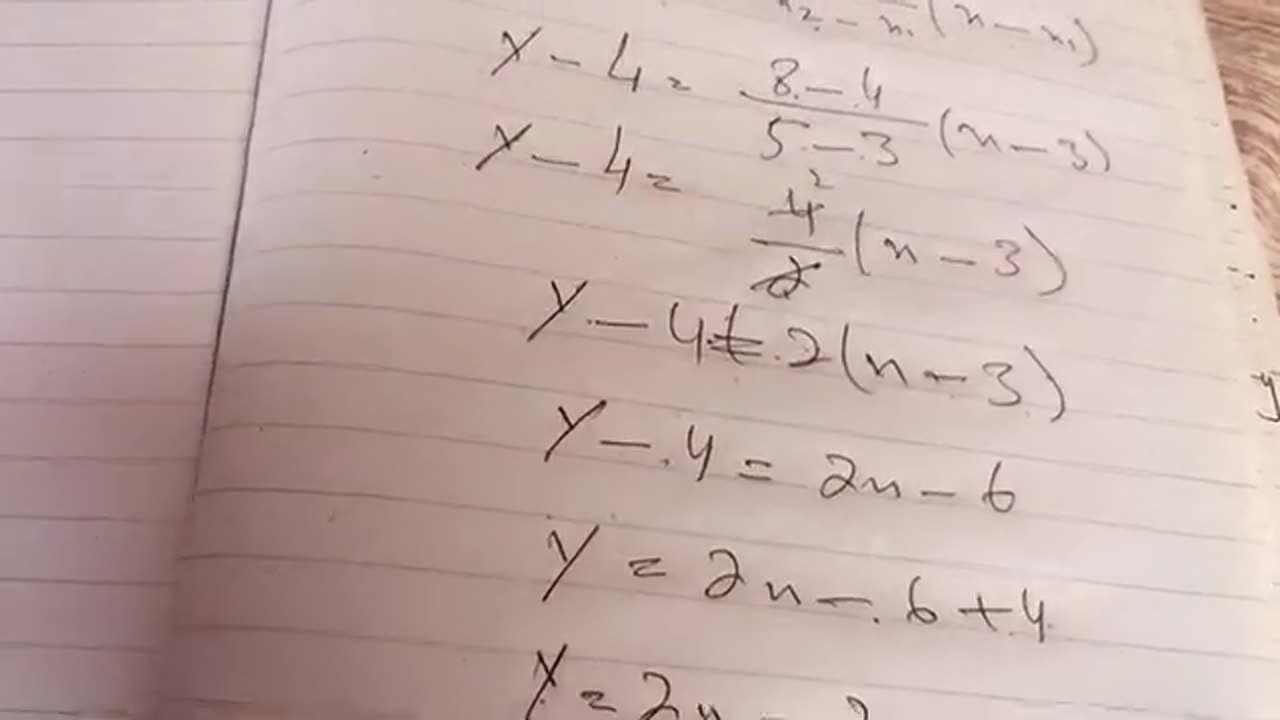 x2 - x1 (x - x1)
y - 4 = 8 - 4 / 5 - 3 (x - 3)
y - 4 = 4 2 / 2 (x - 3)
y - 4 = 2(x - 3)
y - 4 = 2x - 6
y = 2x - 6 + 4
y = 2x - 2
y